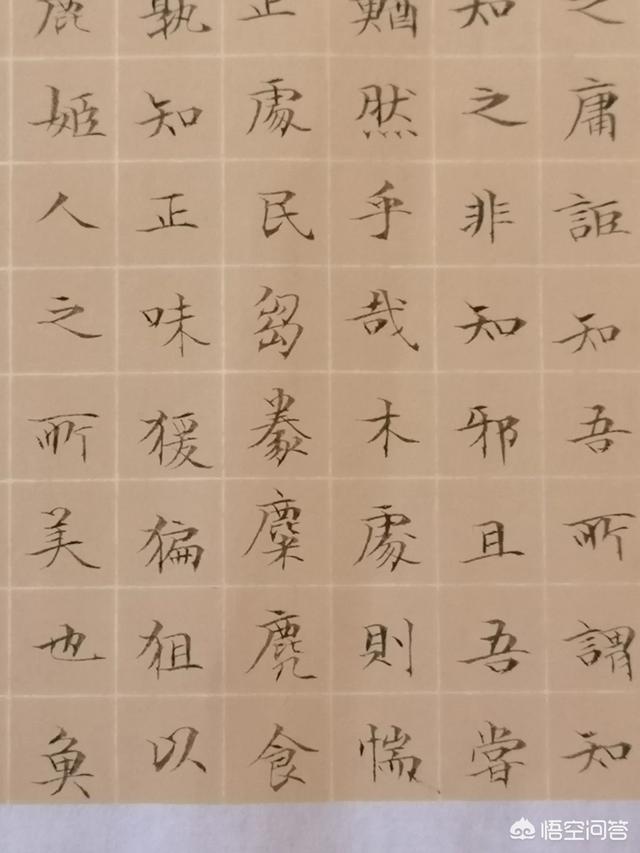 之庸詎知吾所謂知
知之非知邪且吾嘗
然乎哉木處則惴
正處民芻豢麋鹿食
孰知正味猨猵狙以
姬人之所美也魚
悟空问答